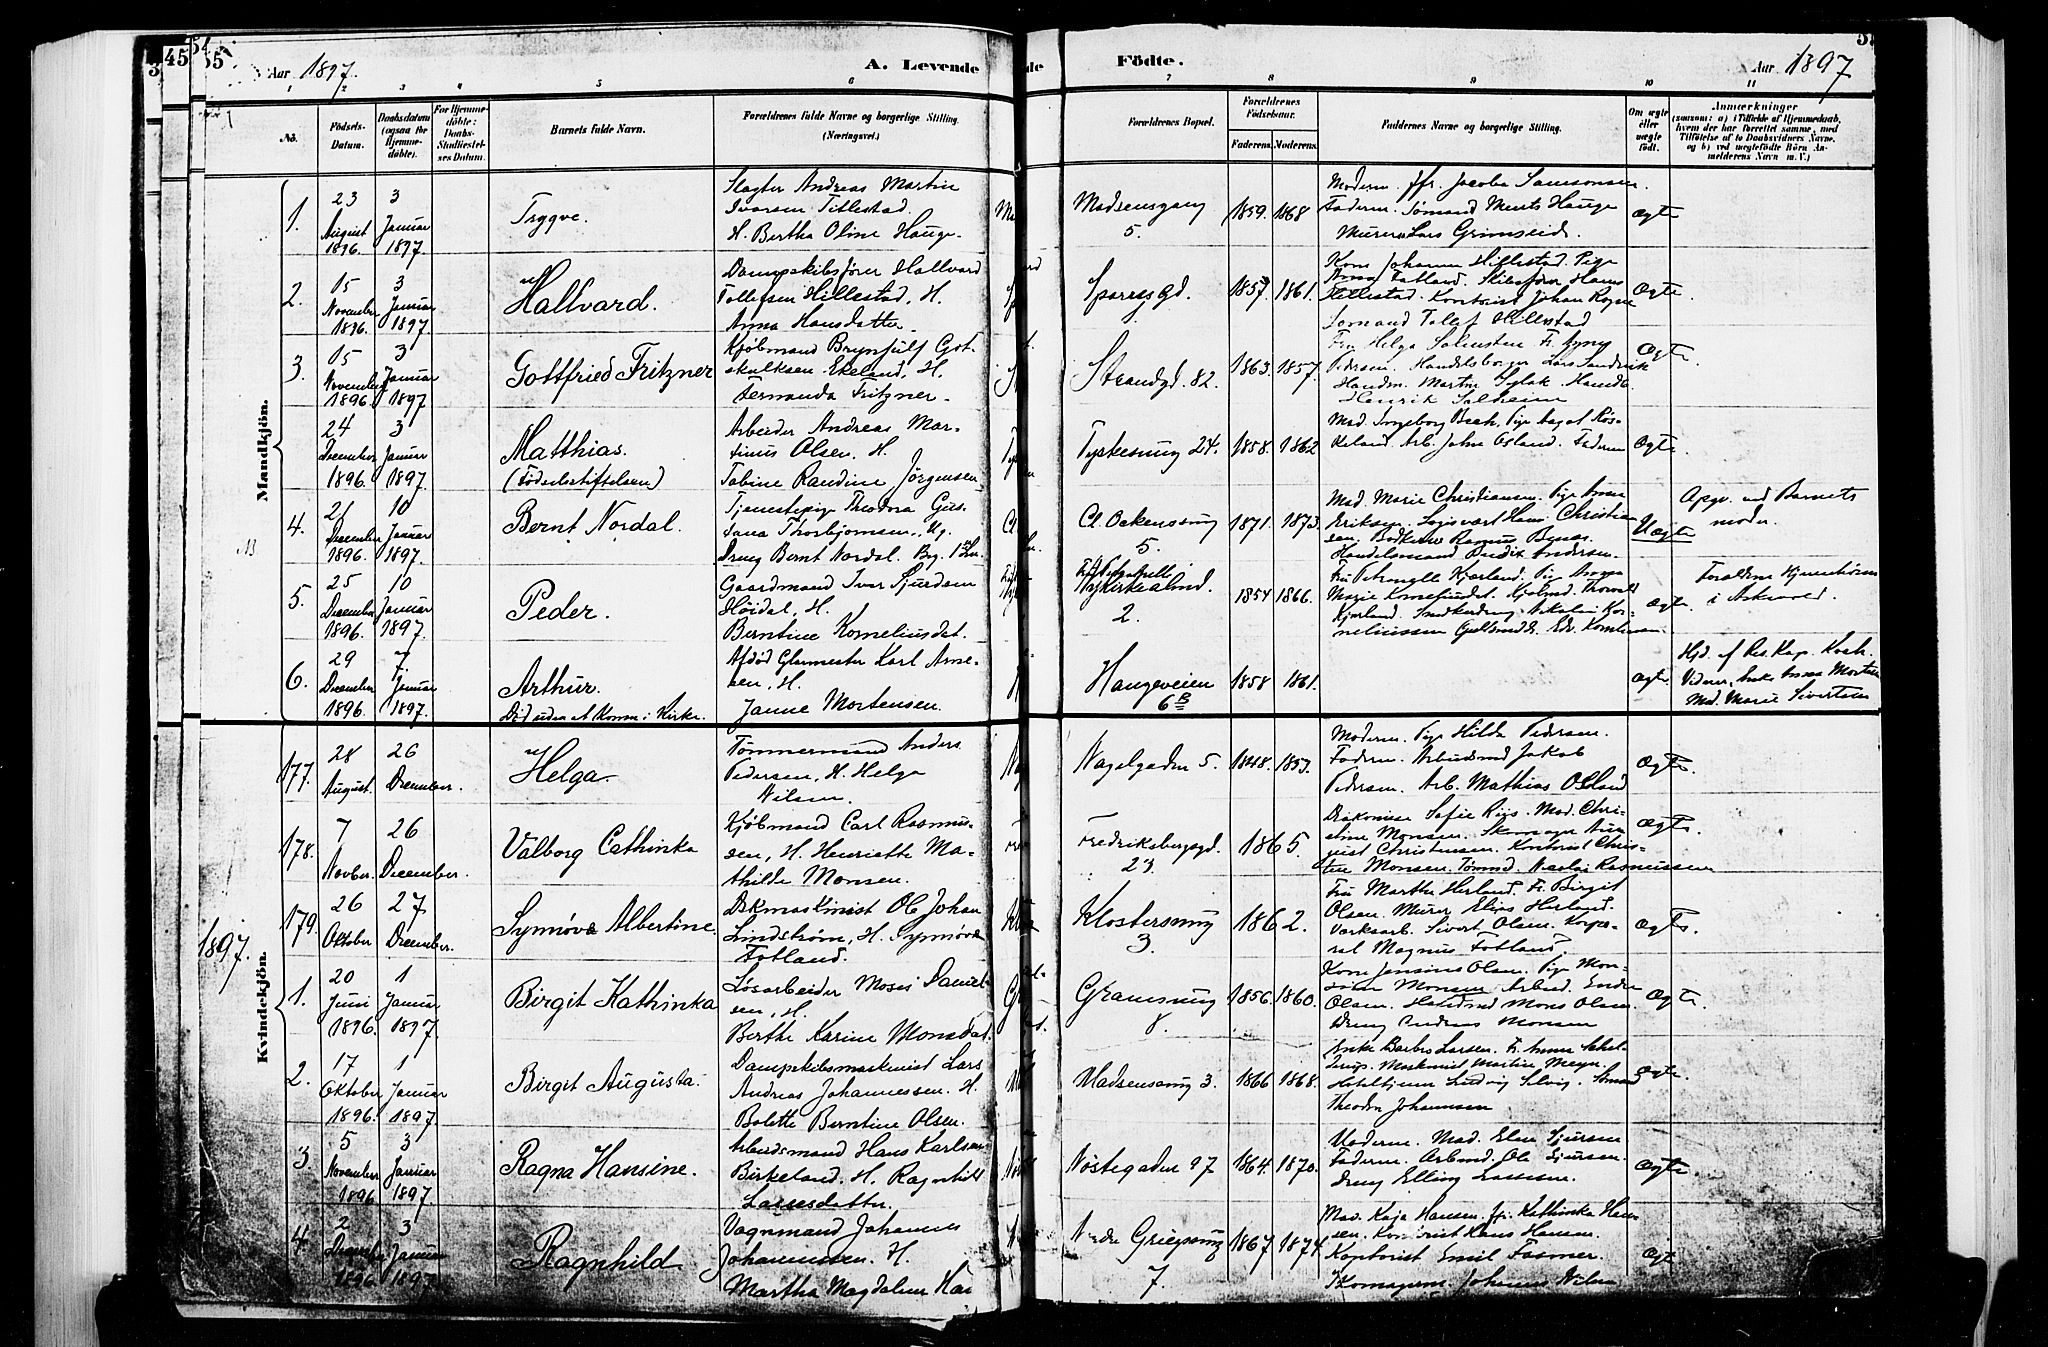 45
55
Aar 1897.
A. Levende
Födte.
Aar 1897
1 2 3 4 5 6 7 8 9 10 11
No.
Födsels-Datum.
Daabsdatum (ogsaa for Hjemme-döbte).
For Hjemme-döbte: Daabs-Stadfæstel-ses Datum.
Barnets fulde Navn.
Forældrenes fulde Navne og borgerlige Stilling. (Næringsvei.)
Forældrenes Bopæl.
Forældrenes Födselsaar.
Faderens. Moderens.
Faddernes Navne og borgerlige Stilling.
Om ægte eller uægte födt.
Anmærkninger
(saasom: a) i Tilfælde af Hjemmedaab, hvem der har forrettet samme, med Tilföielse af to Daabsvidners Navne, og b) ved uægtefödte Börn Anmelderens Navn m. V.)
Mandkjön.
1. 23 August 1896 3 Januar 1897. Trygve.
Slagter Andreas Martin
Ivarsen Tillestad.
H. Bertha Oline Hauge.
Madsensgang 5. 1859. 1868
Modern. Jfr. Jacoba Samsonsen.
Fadern. Tømmand Ments Hauge
Murer Lars Grimseid.
Ægte
2. 15 November 1896. 3 Januar 1897 Hallvard.
Dampskibsfører Hallvard
Tollefsen Hillestad, H.
Anna Hansdatter.
Sparresgd. 1857. 1861.
Kone Johanna Hillestad. Pige
Anna Fatland. Skibsfører Hans
Hillestad. Kontorist Johan
Sømand Tollef Hillestad
Ægte.
3. 15 November 1896 3 Januar 1897 Gottfried Fritzner
Kjøbmand Brynjulf Got-
skalksen Ekeland, H.
Fernanda Fritzner.
Strandgd. 82. 1863. 1857.
Fru Helga
Pedersen. Handelsborger Lars
Handm. Martin
Henrik Solheim
Ægte.
4. 24 December 1896. 3 Januar 1897. Matthias.
(Fødselsstiftelsen)
Arbeider Andreas Mar-
tinus Olsen. H.
Tobine Randine Jørgensen
Tyskesmug 24. 1858. 1862
Mad. Ingeborg Bech. Pige
Arb. John Osland. Fadern
Ægte.
4. 21 December 1896. 10 Januar 1897. Bernt Nordal.
Tjenestepige Theodora Gus-
tava Thorbjørnsen, Ug.
Dreng Bernt Nordal. Bg.
Cl. Ockenssmug 5. 1871. 1873.
Mad. Marie Christiansen. Pige Anna
Eriksen. Hans Christian
sen. Bødker Rasmus
Handelsmand Andersen.
Uægte
Apgv. ved Barnets
moder.
5. 25 December 1896. 10 Januar 1897. Peder.
Gaardmand Ivar Sjurdsen
Høidal, H.
Berntine Korneliusdat.
Nykirkealmd. 2. 1854 1866.
Fru Petronelle Kjærland. Pige Anna
Marie Korneliusdat. Kjøbmd. Thorvald
Kjærland. Snedkerdreng Nikolai Kor-
neliussen
Ægte.
Forældrene hjemhørende
i Askevold.
6. 29 December 1896. 7. Januar 1897. Arthur.
Død uden at komme i Kirke.
Afdød Glarmester Karl Arne-
sen, H.
Janne Mortensen.
Haugeveien 6B 1858 1861.
Ægte.
Hjd. af Res. Kap. Koch.
Vidner, Enke Anna Mortensen
Mad. Marie Sivertsen
177. 28 August. 26 December. Helga.
Tømmermand Anders
Pedersen, H. Helga
Nilsen.
Nagelgaden 5. 1848. 1853.
Modern. Pige Hilda Pedersen.
Fadern. Arbeidsmd Jakob
Pedersen. Arb. Mathias Osland
Ægte.
178. 7 Novber. 26 December. Valborg Cathinka
Kjøbmand Carl Rasmus-
sen, H. Henriette Ma-
thilde Monsen.
Fredriksbergsgd. 23. 1865.
Diakonisse Sofie Riis. Mad. Chri-
stine Monsen. Skomager Aug
ust Christensen. Kontorist Chris-
ten Monsen. Tømmd. Nicolai Rasmussen
Ægte.
1897.
Kvindekjön.
179. 26 Oktober 27 December. Synnøve Albertine.
Ole Johan
Lindstrøm, H. Synnøve
Fotland.
Klostersmug 3. 1862.
Fru Marthe Herland. Fr. Birgit
Olsen. Murer Elias Herland.
Værksarb. Sivert Olsen. Korpo-
ral Magnus Fotland
Ægte.
1. 20 Juni 1896. 1 Januar 1897. Birgit Kathinka
Løsarbeider Moses Daniel-
sen, H.
Berthe Karine Monsdat.
Gramsmug 8. 1856. 1860.
Kone Jensine Olsen. Pige Mon-
sine Monsen. Arbeid. Endre
Olsen. Handmd Mons Olsen.
Dreng Andreas Monsen
Ægte
2. 17 Oktober 1896. 1 Januar 1897. Birgit Augusta.
Dampskibsmaskinist Lars
Andreas Johannessen. H.
Bolette Berntine Olsen.
Madsensmug 3. 1866 1868.
Enke Barbro Larsen. Fr. Anna Schel-
derup. Maskinist Martin Meyer.
Hoteltjener Ludvig Selvig. Sømand
Theodor Johannsen
Ægte.
3. 5 November 1896 3 Januar 1897 Ragna Hansine.
Arbeidsmand Hans Karlsen
Birkeland, H. Ragnhild
Lassesdatter.
Nøstegaden 97 1864. 1870.
Moderen. Mad. Elen Sjursen
Fadern. Arbmd. Ole Sjursen.
Dreng Elling Lassesen.
Ægte.
4. 2 December 1896 3 Januar 1897. Ragnhild
Vognmand Johannes
Johannessen. H.
Martha Magdalene Han
Nedre Griegsmug 7. 1867 1874.
Mad. Kaja Hansen. Jfr. Kathinka Han
sen. Kontorist Klaus Hansen.
Kontorist Emil Fasmer.
Skomagerm. Johannes Nilsen
Ægte